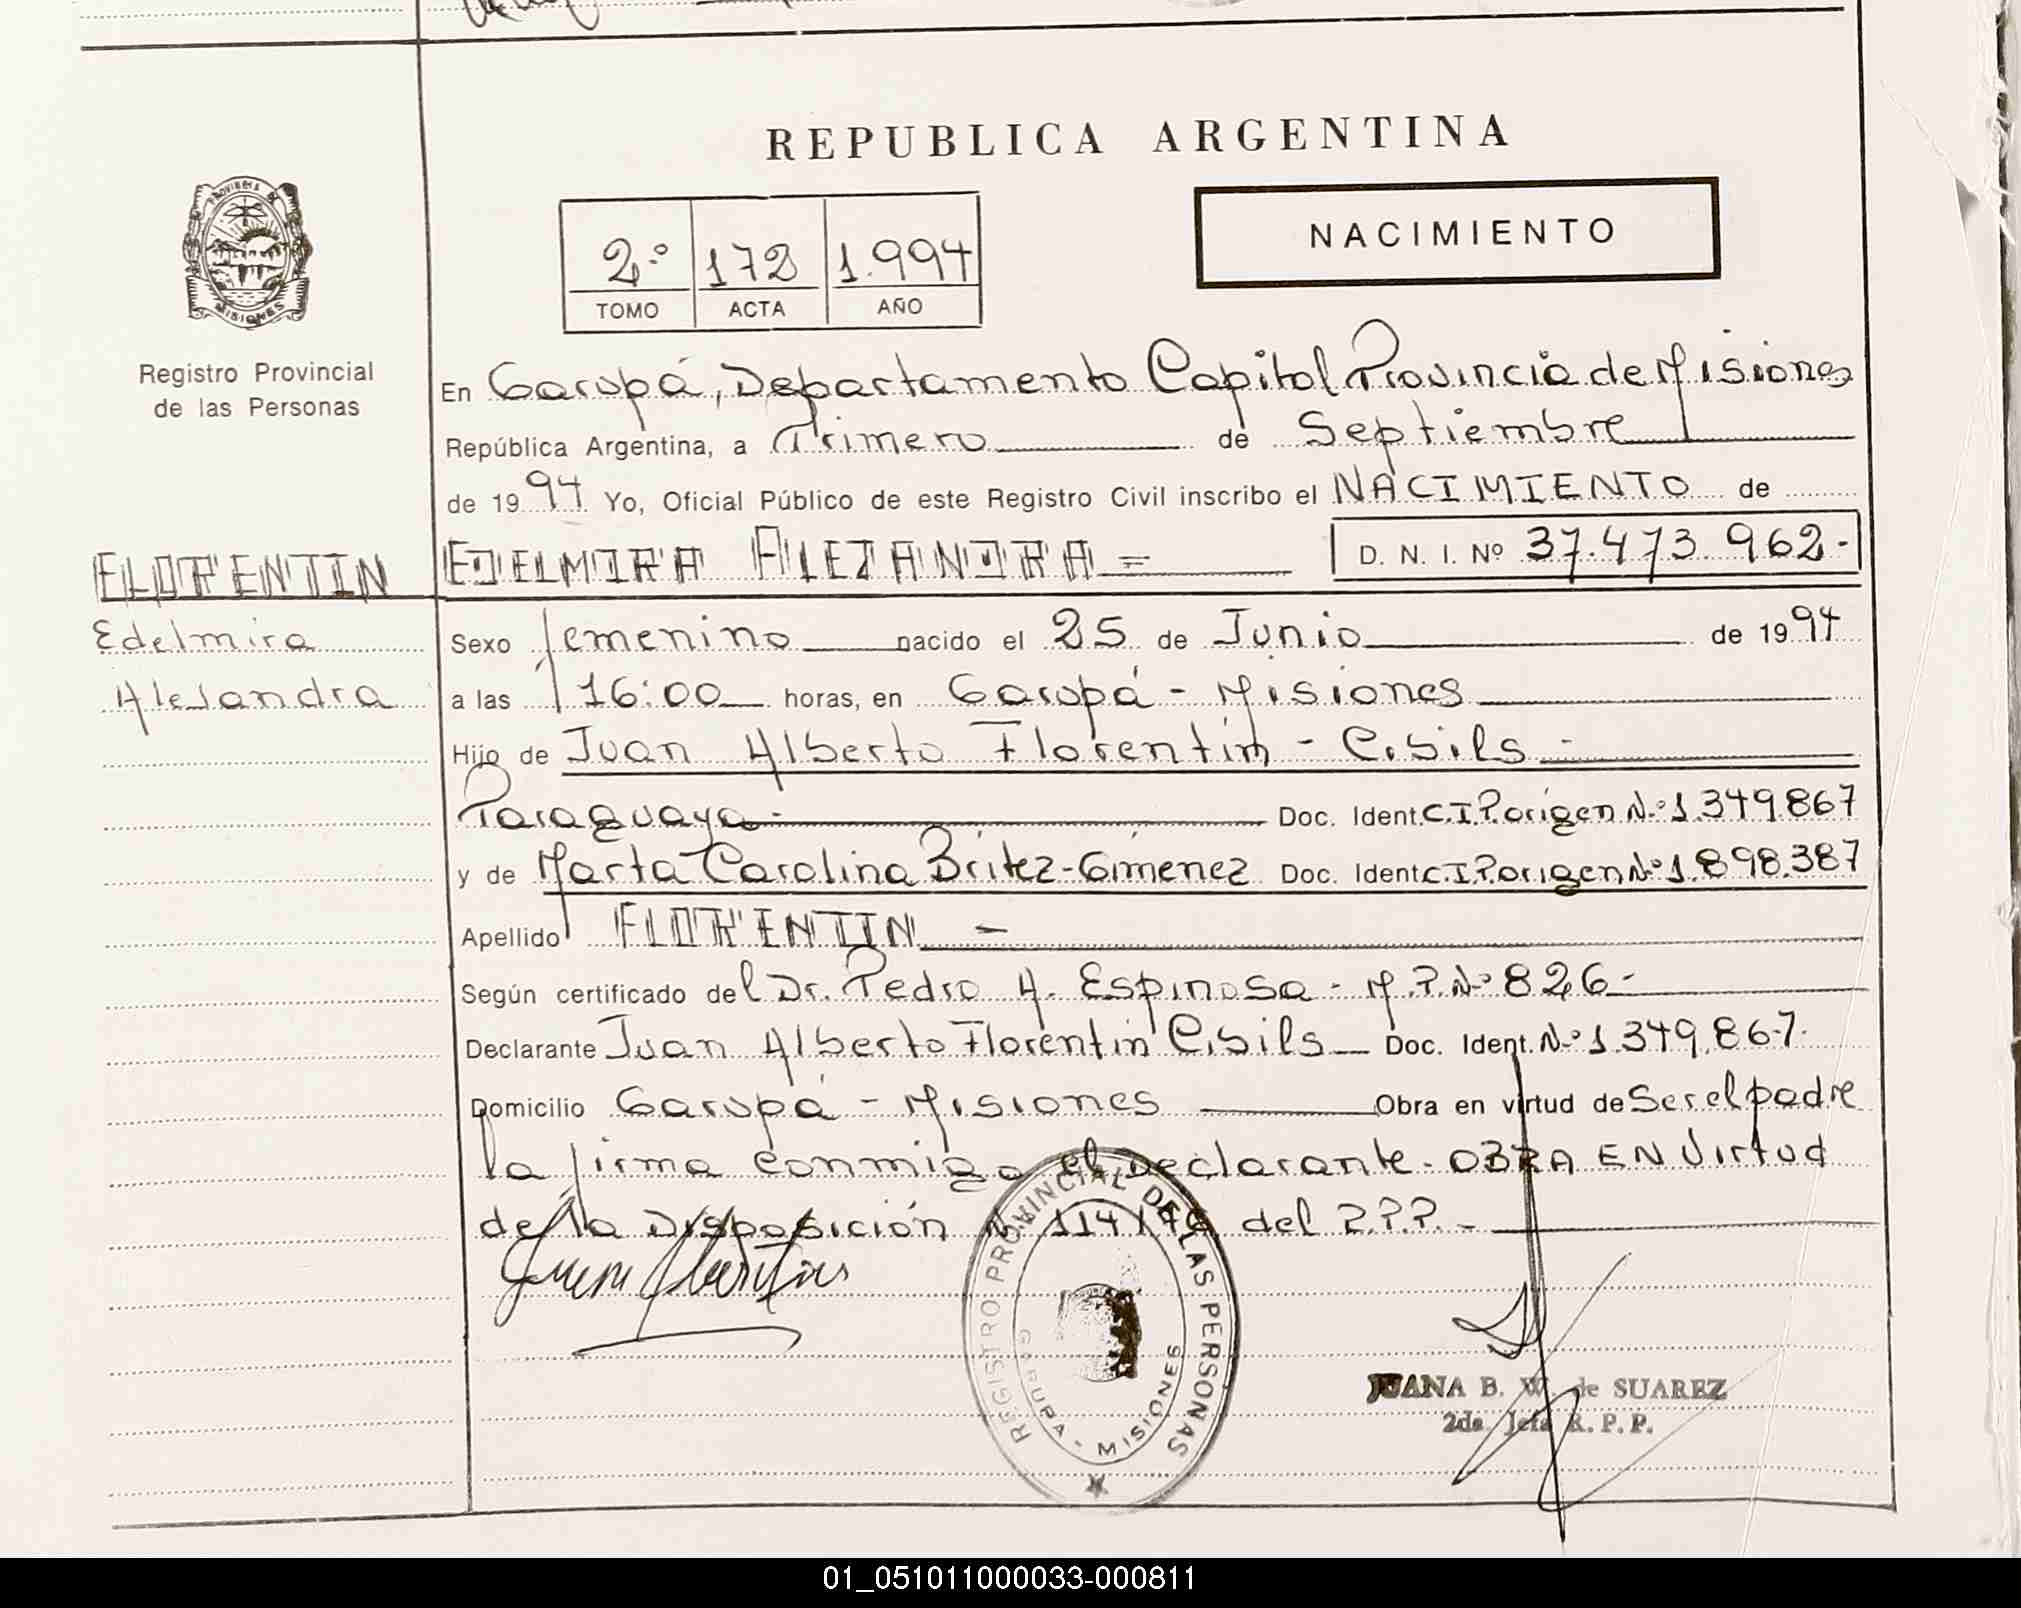 REPUBLICA ARGENTINA
PROVINCIA DE
MISIONES
Registro Provincial
de las Personas
2º 172 1.994
TOMO ACTA AÑO
NACIMIENTO
En Garupá, Departamento Capital Provincia de Misiones
República Argentina, a Primero de Septiembre
de 1994 Yo, Oficial Público de este Registro Civil inscribo el NACIMIENTO de
FLORENTIN EDELMIRA ALEJANDRA = D. N. I. Nº 37.473.962-
Edelmira
Alejandra
Sexo femenino nacido el 25 de Junio de 1994
a las 16:00 horas, en Garupá - Misiones
Hijo de Juan Alberto Florentin - Cibils -
Paraguaya- Doc. Ident. C.I.P. origen Nº 1.349.867
y de Marta Carolina Britez-Gimenez Doc. Ident. C.I.P. origen Nº 1.898.387
Apellido FLORENTIN -
Según certificado del Dr. Pedro A. Espinosa - M.P. Nº 826-
Declarante Juan Alberto Florentin Cibils Doc. Ident. Nº 1.349.867.
Domicilio Garupá - Misiones Obra en virtud de Ser el padre
la firma conmigo el Declarante- OBRA EN Virtud
de la Disposición Nº 114/ del R.P.P. -
REGISTRO PROVINCIAL DE LAS PERSONAS
GARUPA - MISIONES
JUANA B. W. de SUAREZ
2da. Jefa R. P. P.
01_051011000033-000811